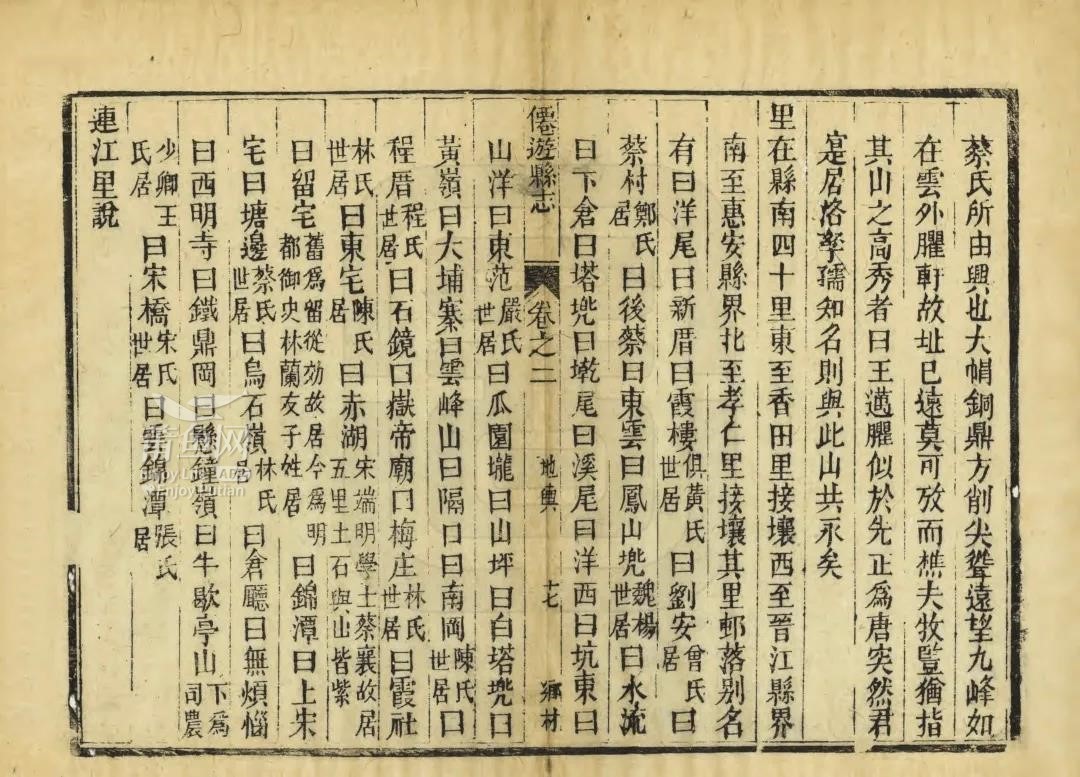 蔡氏所由興也大帽銅鼎方削尖聳遠望九峰如
在雲外臞軒故址已遠莫可攷而樵夫牧豎猶指
其山之高秀者曰王邁臞似於先正為唐突然君
寔居洛孥孺知名則與此山共永矣
里在縣南四十里東至香田里接壤西至晉江縣界
南至惠安縣界北至孝仁里接壤其里邨落別名
有曰洋尾曰新厝曰霞樓俱黃氏世居曰劉安曾氏居曰
蔡村鄭氏居曰後蔡曰東雲曰鳳山兠魏楊世居曰水流
曰下倉曰塔兠曰墘尾曰溪尾曰洋西曰坑東曰
僊遊縣志 卷之二 地輿 十七 鄉村
山洋曰東范嚴氏世居曰瓜園壠曰山坪曰白塔兠曰
黃嶺曰大埔寨曰雲峰山曰隔口曰南岡陳氏世居曰
程厝程氏世居曰石鏡曰嶽帝廟曰梅庄林氏世居曰霞社
林氏世居曰東宅陳氏居曰赤湖宋端明學士蔡襄故居五里土石與山皆紫
曰留宅舊為留從効故居今為明都御史林蘭友子姓居曰錦潭曰上宋
宅曰塘邊蔡氏世居曰烏石嶺林氏居曰倉廳曰無煩惱
曰西明寺曰鐵鼎岡曰懸鐘嶺曰牛歇亭山下為司農
少卿王氏居曰宋橋宋氏世居曰雲錦潭張氏居
連江里說